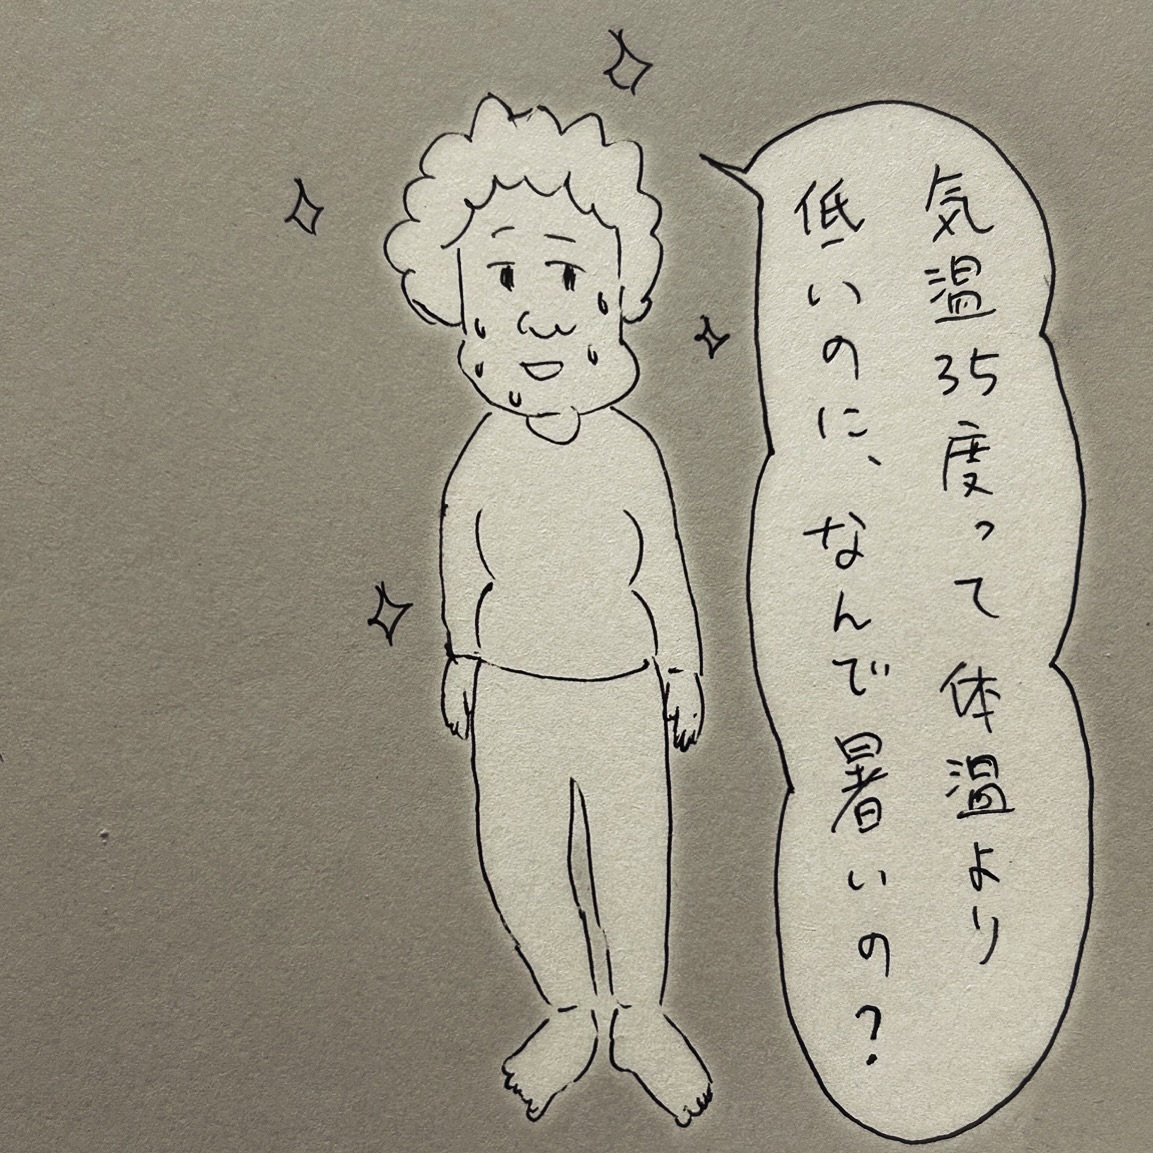 気温35度って体温より
低いのに、なんで暑いの?